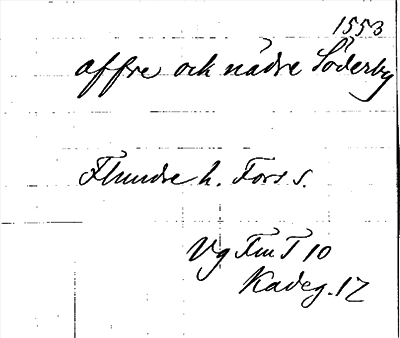 1553
öffre och nädre Söderby
Flundre h. Fors s.
Vg Fm T 10
Kadeg. 17